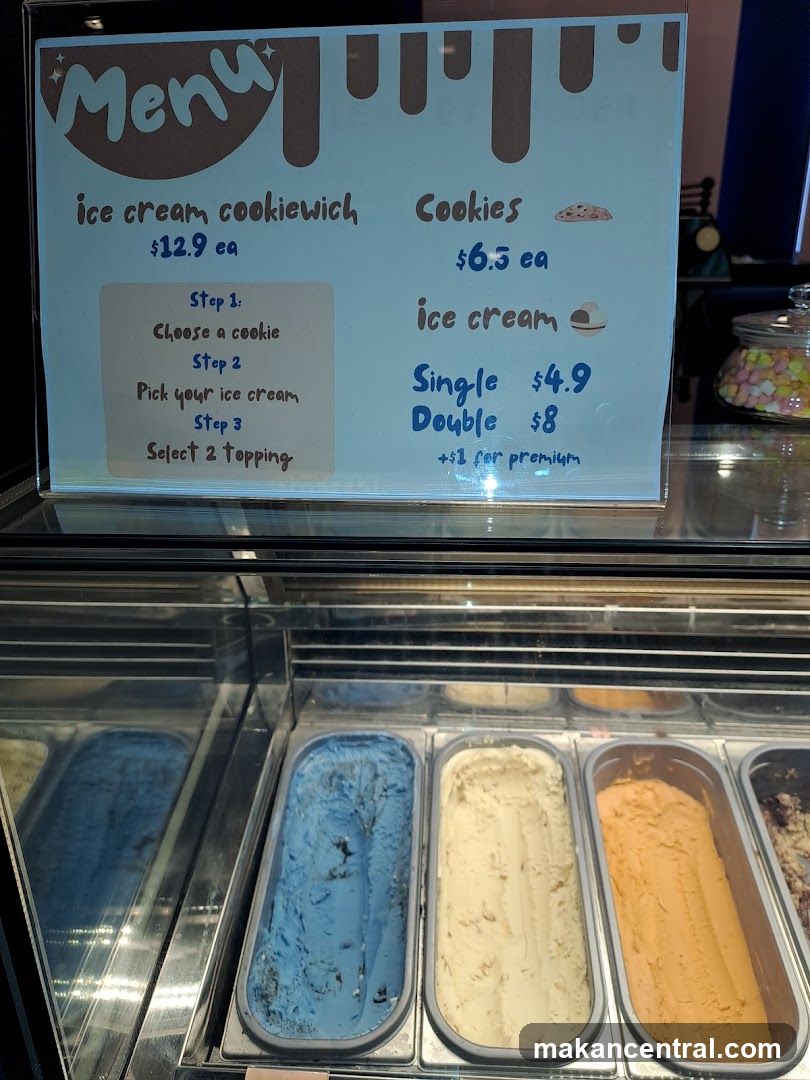 Menu
ice cream cookiewich
$12.9 ea
Step 1:
Choose a cookie
Step 2
Pick your ice cream
Step 3
Select 2 topping
Cookies
$6.5 ea
ice cream
Single $4.9
Double $8
+$1 for premium
makancentral.com